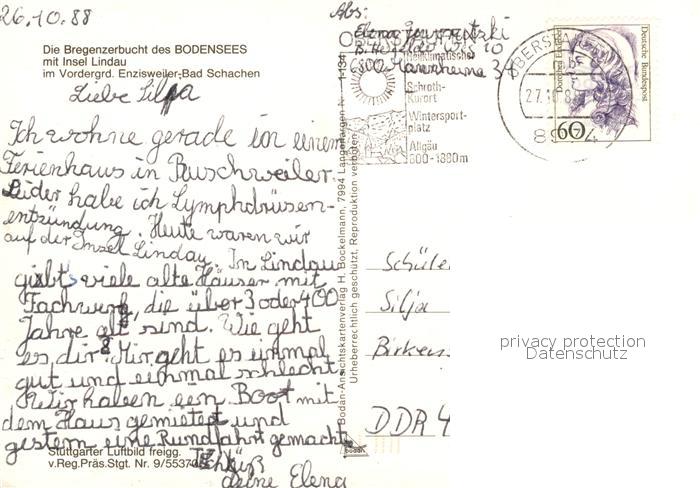 26.10.88
Die Bregenzerbucht des BODENSEES
mit Insel Lindau
im Vordergrd. Enzisweiler-Bad Schachen
Liebe Silja
Ich wohne gerade in einem
Ferienhaus in Ruschweiler.
Leider habe ich Lymphdrüsen-
entzündung. Heute waren wir
auf der Insel Lindau. In Lindau
gibt's viele alte Häuser mit
Fachwerk, die über 3 oder 400
Jahre alt sind. Wie geht
es dir? Mir geht es einmal
gut und einmal schlecht.
Wir haben ein Boot mit
dem Haus gemietet und
gestern eine Rundfahrt gemacht
Tschüß
deine Elena
Stuttgarter Luftbild freigg.
v.Reg.Präs.Stgt. Nr. 9/5537
Bodan-Ansichtskartenverlag H. Bockelmann, 7994 Langenargen
Urheberrechtlich geschützt, Reproduktion verboten
Abs:
Elena
6800 Mannheim
Heilklimatischer
Schroth-
Kurort
Wintersport-
platz
Allgäu
800-1800m
OBERST
27.10.8
89 4
Deutsche Bundespost
60
Schüle
Silja
Birken
DDR 4
privacy protection
Datenschutz